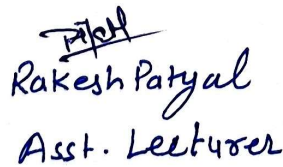 Rakesh Patyal
Asst. Lecturer